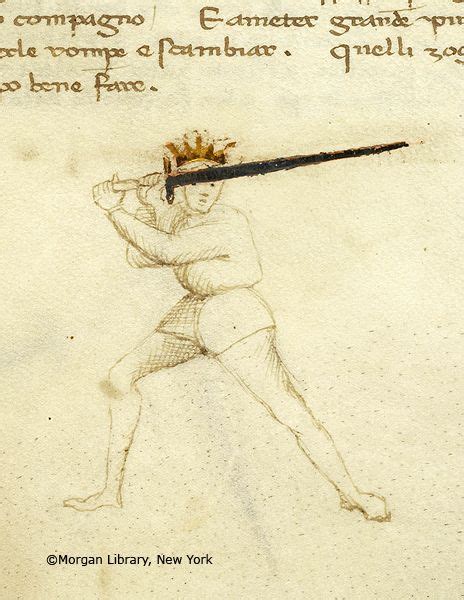 compagno E ameter grande
cele rompe e scambiar. quelli zog
po bene fare.
©Morgan Library, New York